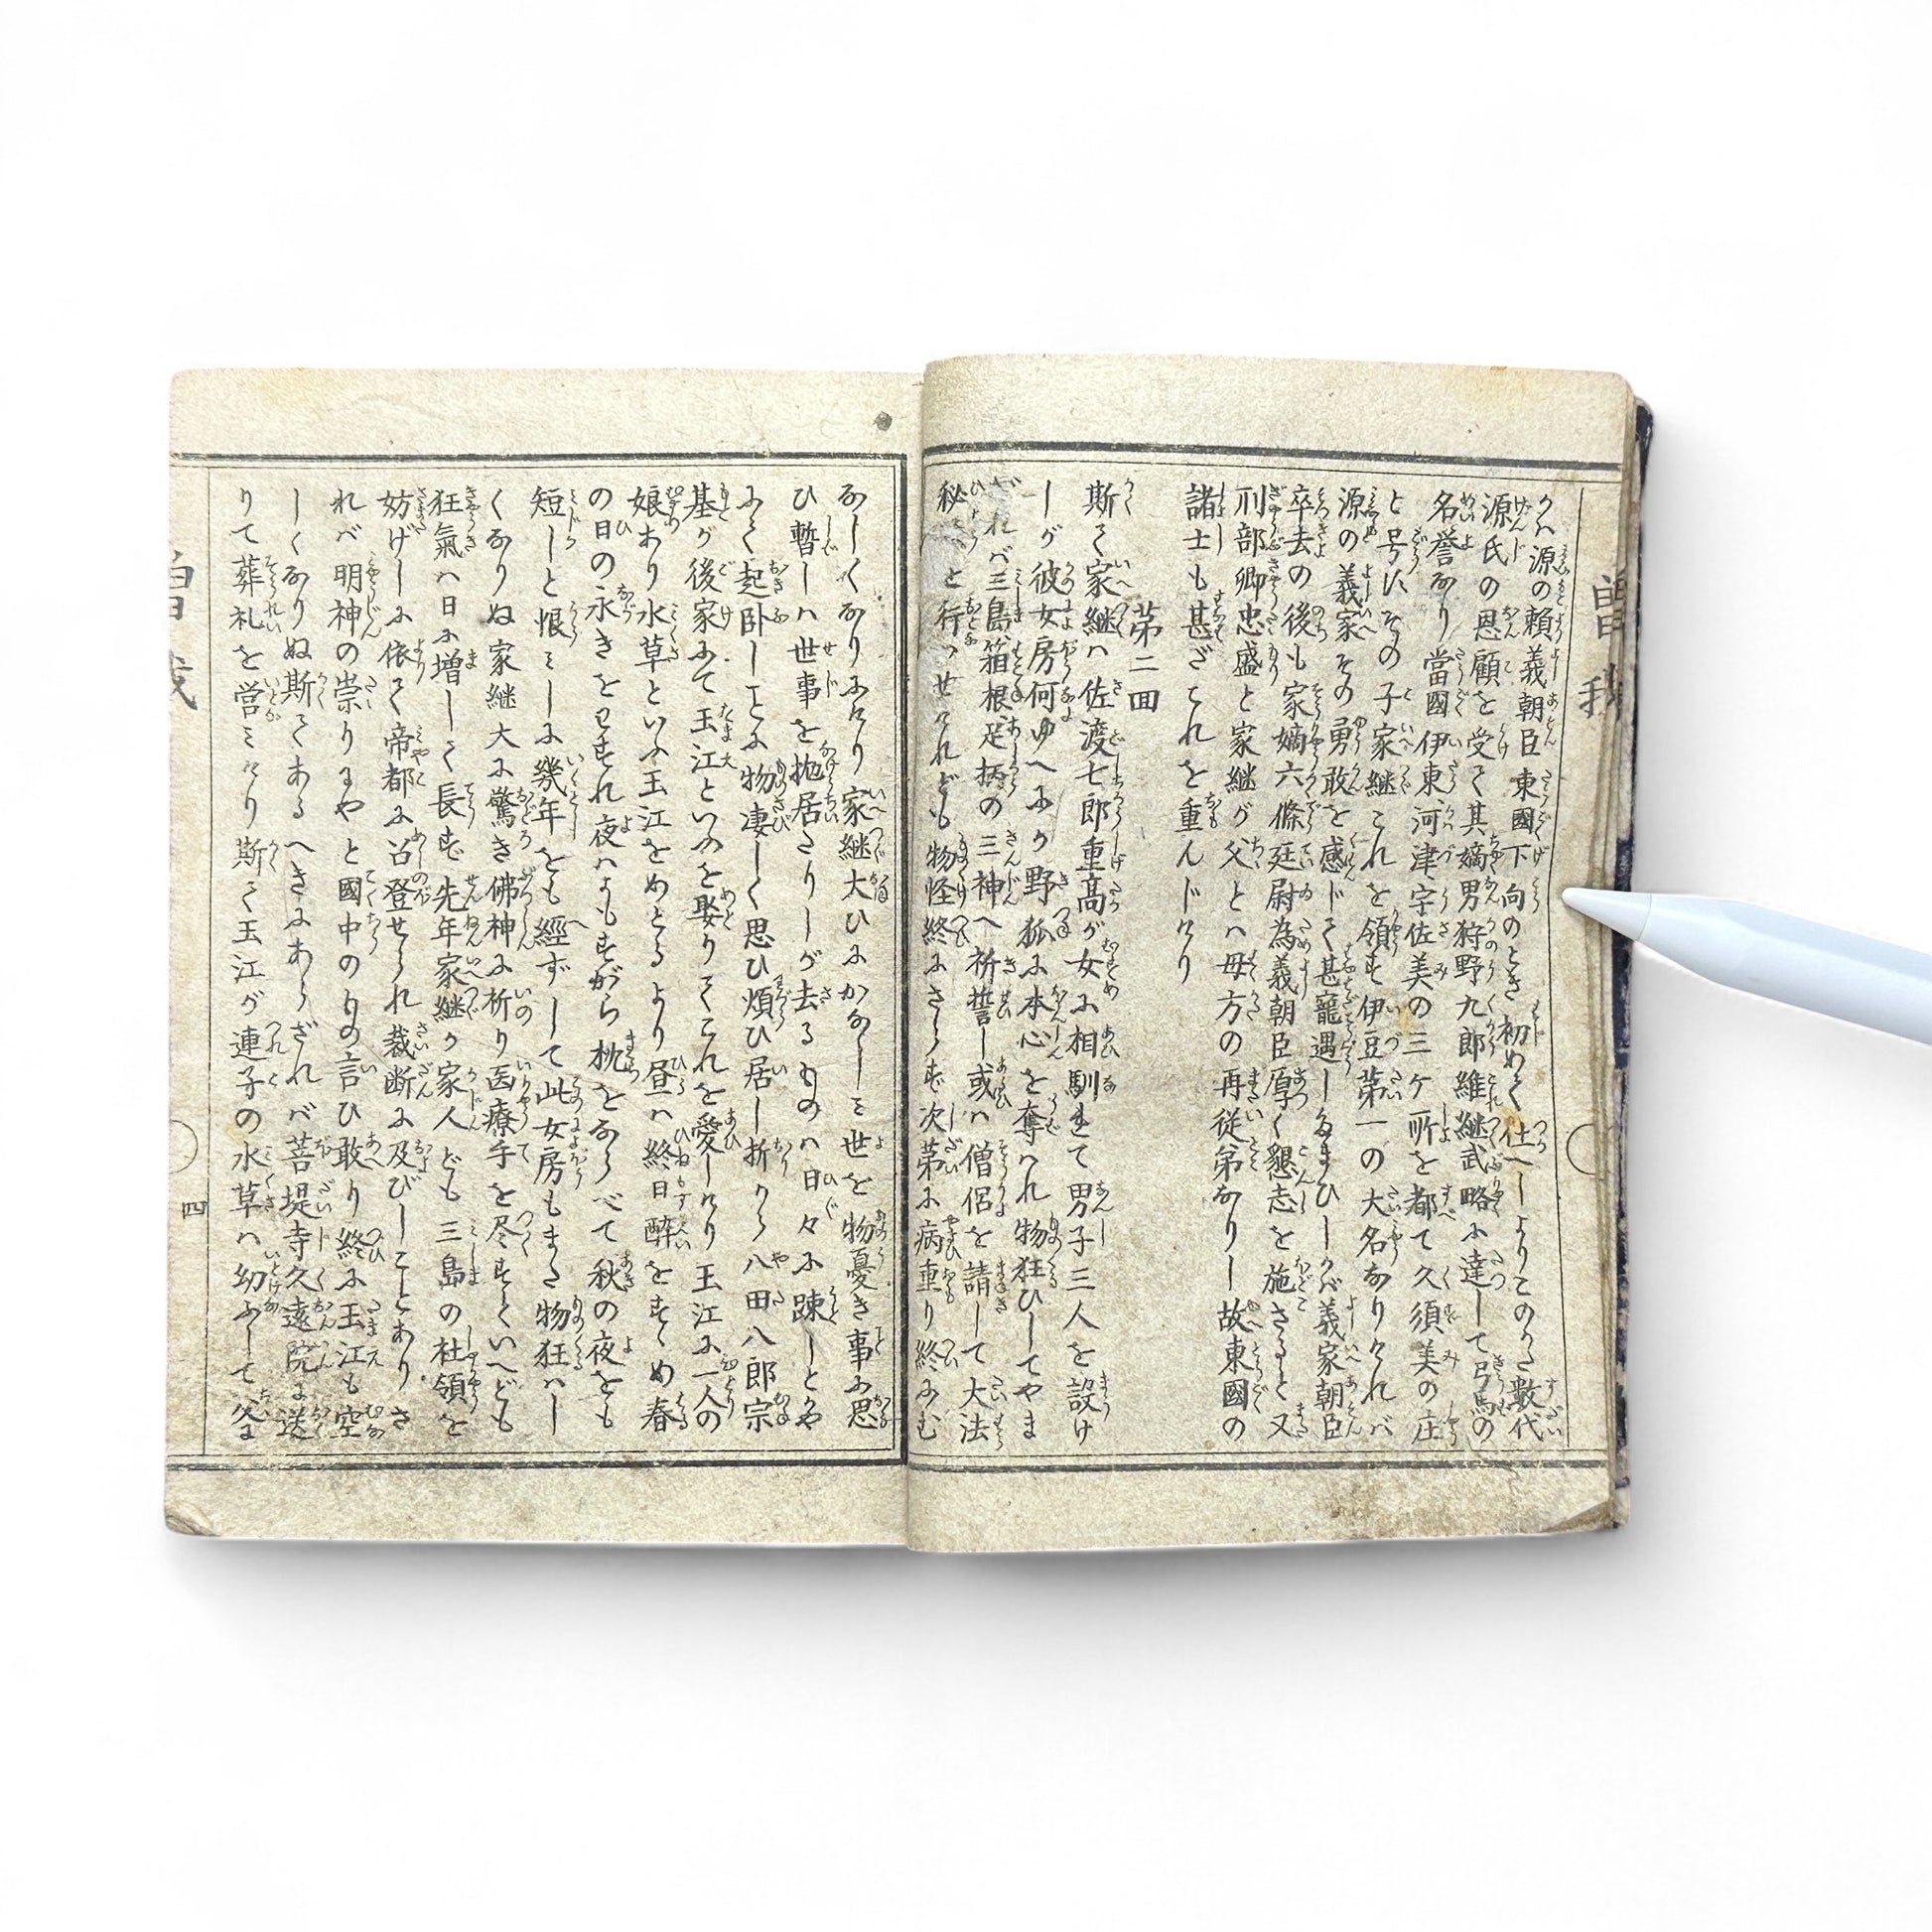 曽我
くハ源の頼義朝臣東國下向のとき初めて仕へしよりこのかた数代
源氏の恩顧を受て其嫡男狩野九郎維継武略に達して弓馬の
名誉あり當國伊東河津宇佐美の三ケ所を都て久須美の庄
と号けその子家継これを領す伊豆第一の大名なりけれバ
源の義家その勇敢を感じて甚寵遇したまひしが義家朝臣
卒去の後も家嫡六條廷尉為義朝臣厚く懇志を施さるゝと又
刑部卿忠盛と家継が父とハ母方の再従弟なりし故東國の
諸士も甚ざこれを重んじけり
第二回
斯て家継ハ佐渡七郎重高が女に相馴れて男子三人を設け
しが彼女房何ゆへにか野狐に本心を奪ハれ物狂ひしてやま
ざれバ三島箱根足柄の三神へ祈誓し或ハ僧侶を請して大法
秘 と行ハせけれども物怪終にさらず次第に病重り終にむ
なしくなりにけり家継大ひにかなしミ世を物憂き事に思
ひ暫しハ世事を抛居たりしが去るものハ日々に踈しとかや
よく起卧しことに物凄しく思ひ煩ひ居し折から八田八郎宗
基が後家にて玉江といふを娶りてこれを愛しけり玉江に一人の
娘あり水草といふ玉江をめとるより昼ハ終日酔をすゝめ春
の日の永きをわすれ夜ハよもすがら枕をならべて秋の夜をも
短しと恨ミしに幾年をも經ずして此女房もまた物狂ハし
くなりぬ家継大に驚き佛神に祈り医療手を尽すといへども
狂氣ハ日に増して長ず先年家継が家人ども三島の社領を
妨げしに依て帝都に召登せられ裁断に及びしことありさ
れバ明神の祟りにやと國中のもの言ひ敢り終に玉江も空
しくなりぬ斯てあるへきにあらざれバ菩提寺久遠院に送
りて葬礼を営ミけり斯て玉江が連子の水草ハ幼ふして父に
曽我
四